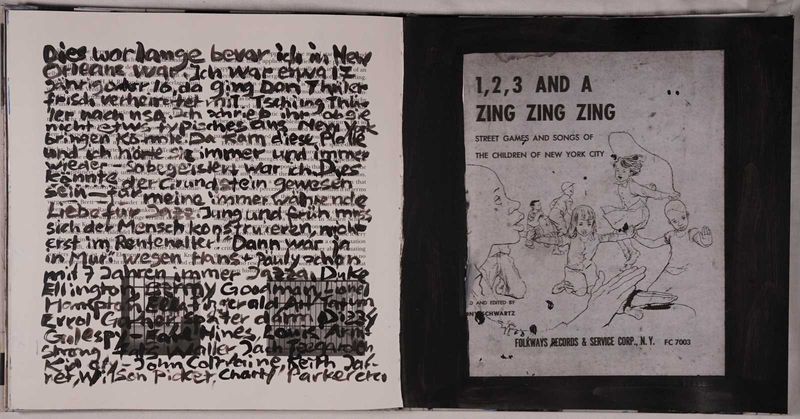 Dies war lange bevor ich in New
Orleans war. Ich war etwa 17
jährig oder 16, da ging Dan Thüler
frisch verheiratet mit Tsching Thü-
ler nach USA. Ich schrieb ihr ob sie
nicht etws typisches aus New York
bringen könnte. Da kam diese Platte
und ich hörte sie immer und immer
wieder - so begeistert war ich. Dies
könnte der Grundstein gewesen
sein - für meine immerwährende
Liebe für Jazz. Jung und früh muss
sich der Mensch konstruieren, nicht
erst im Rentenalter. Dann war ja
in Muri wegen Hans + Pauly schon
mit 7 Jahren immer Jazz da. Duke
Ellington Benny Goodman Lionel
Hampton Ella Fitzgerald Art Tatum
Errol später dann Dizzy
Galesp Hines Louis Arm
strong Waller
John Coltraine, Keith Jar-
ret, Wilson Picket, Charly Parker etc
1,2,3 AND A
ZING ZING ZING
STREET GAMES AND SONGS OF
THE CHILDREN OF NEW YORK CITY
D AND EDITED BY
SCHWARTZ
FOLKWAYS RECORDS & SERVICE CORP., N. Y. FC 7003